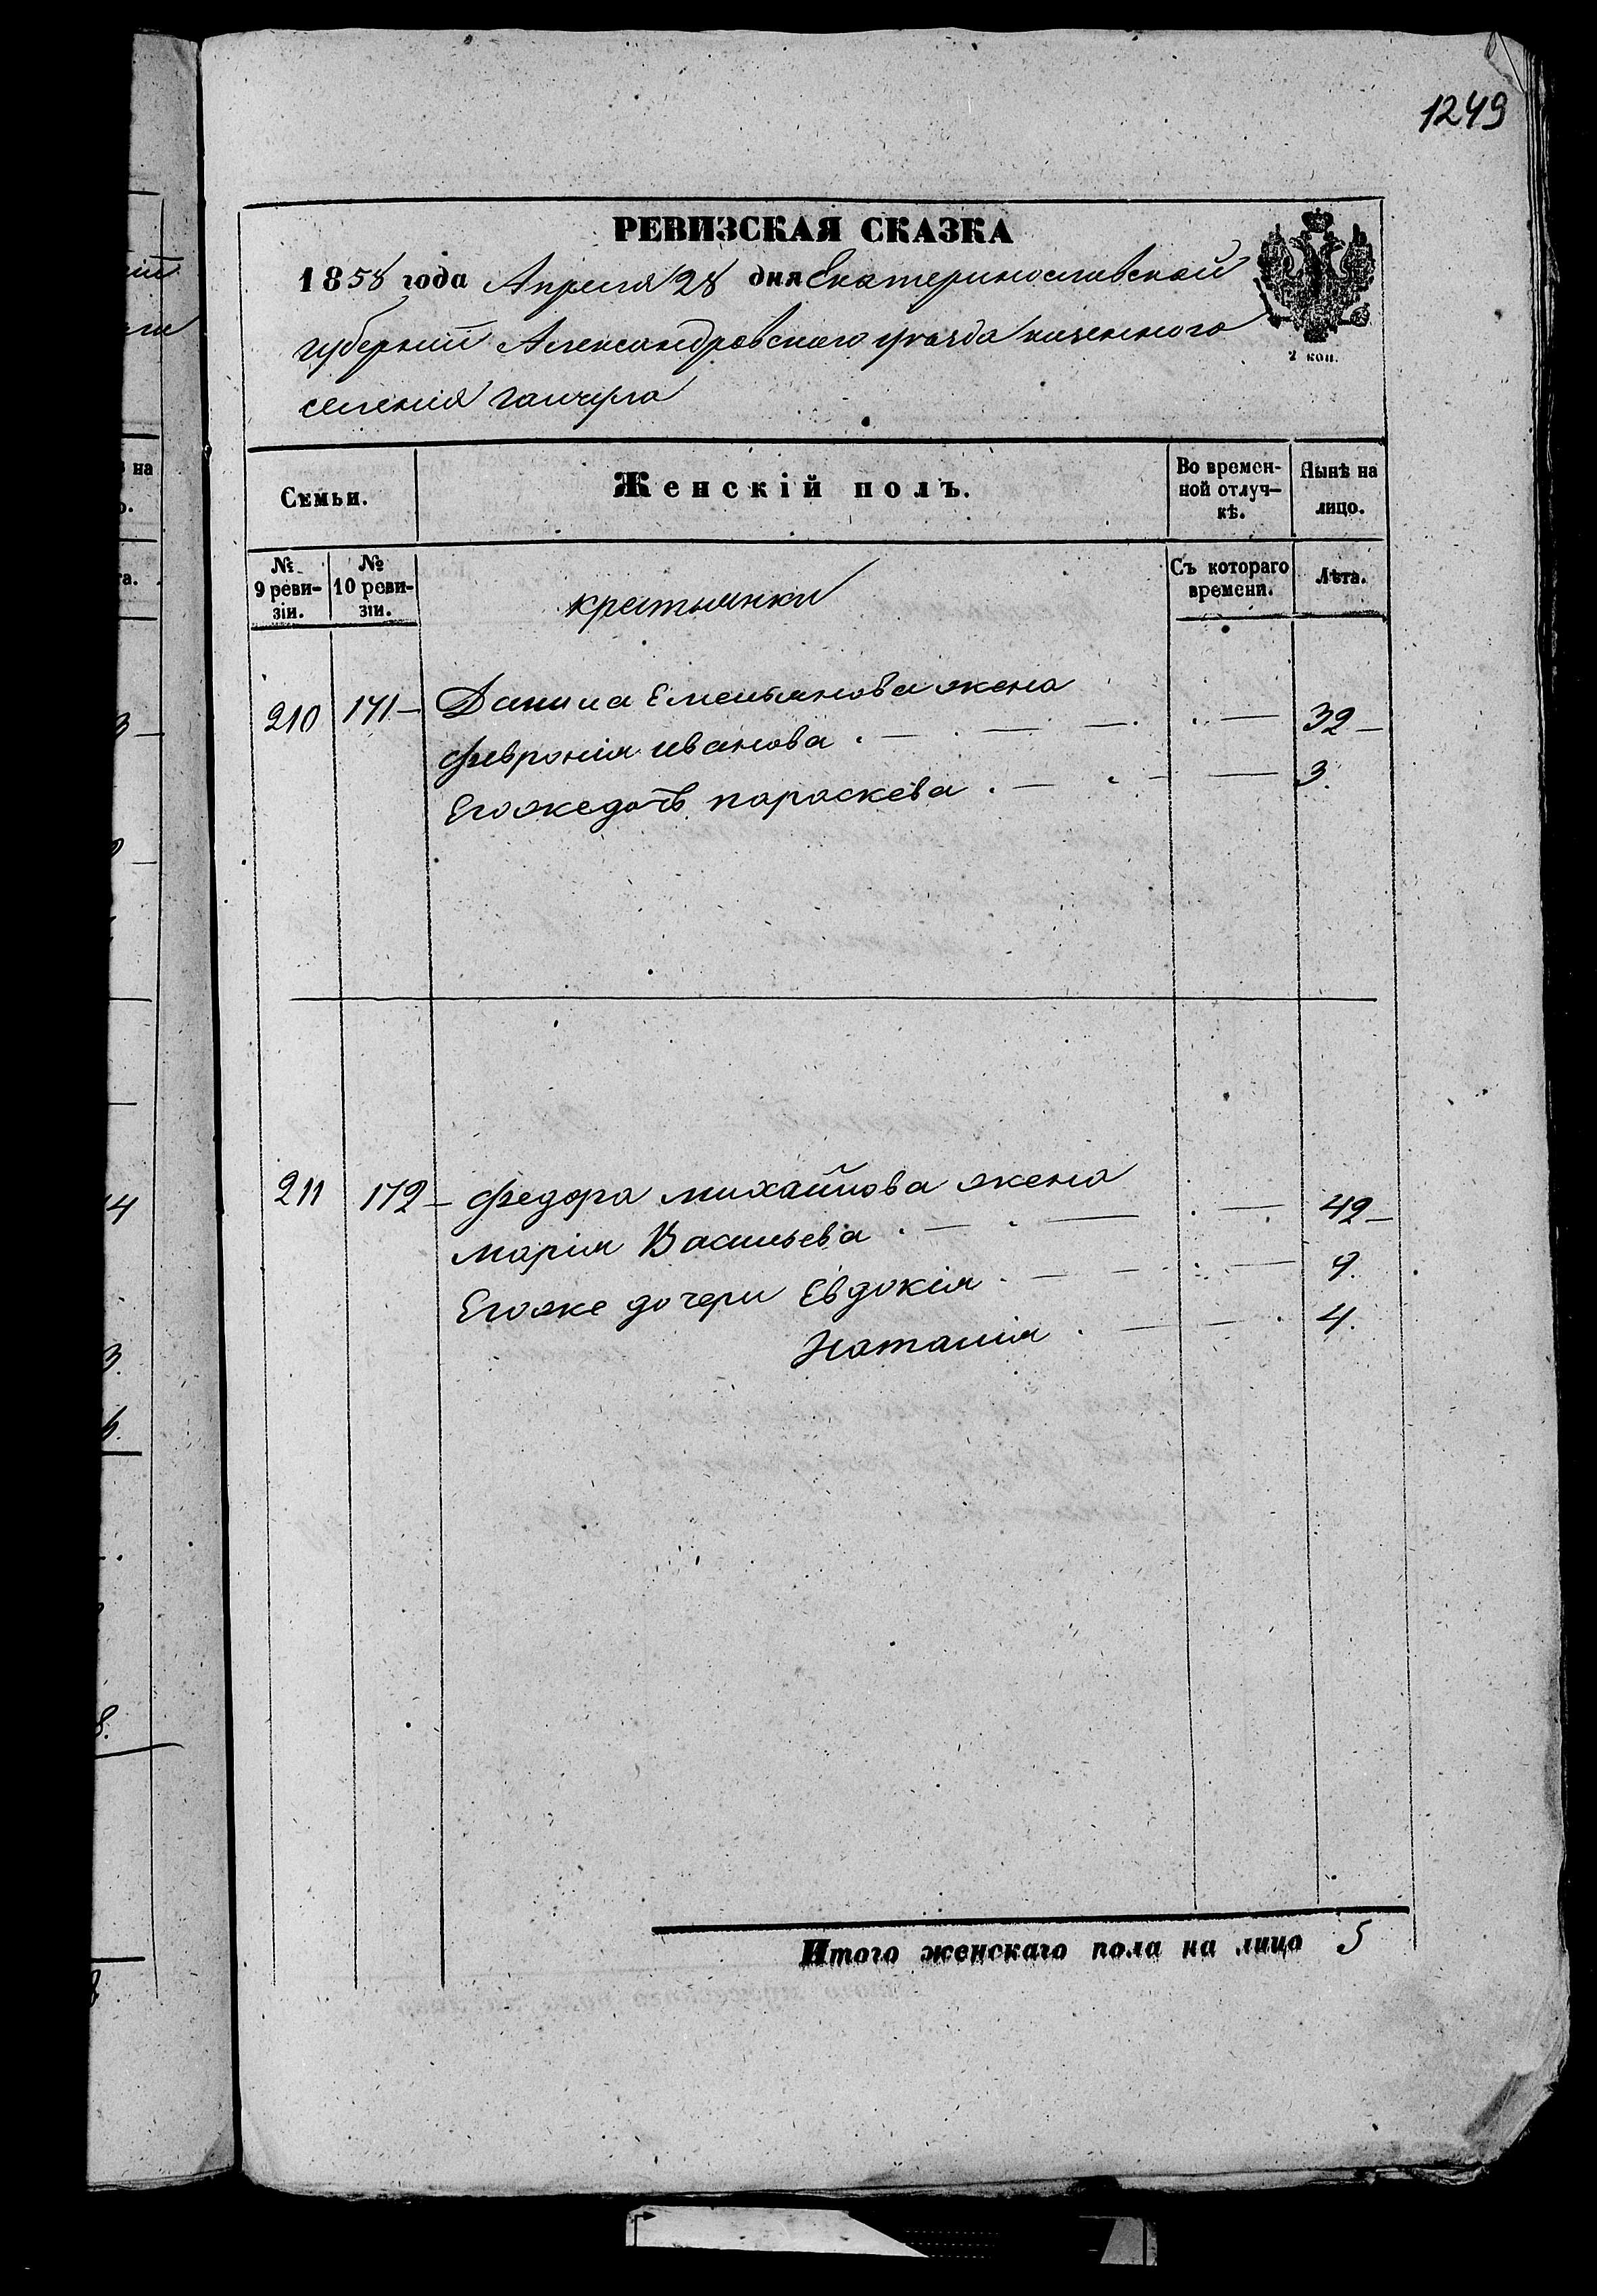 1249
РЕВИЗСКАЯ СКАЗКА
1858 года Апреля 28 дня Екатеринославской
губерніи Александровского уѣзда казенного
селенія Гайчула
2 коп.
Семьи.
Женскій полъ.
Во времен-
ной отлуч-
кѣ.
Нынѣ на
лицо.
№
9 реви-
зіи.
№
10 реви-
зіи.
крестьянки
Съ котораго
времени.
Лѣта.
210 171 – Данила Емельянова жена
Феврония иванова . — . — — . . — 32 –
Егожедочь параскева . — . – — 3.
211 172 – Федора михайлова жена
марія Васильева . — . — . — . 42 –
Егоже дочери Евдокія . — – . . — 9.
Наталия . — — . 4.
Итого женскаго пола на лицо 5